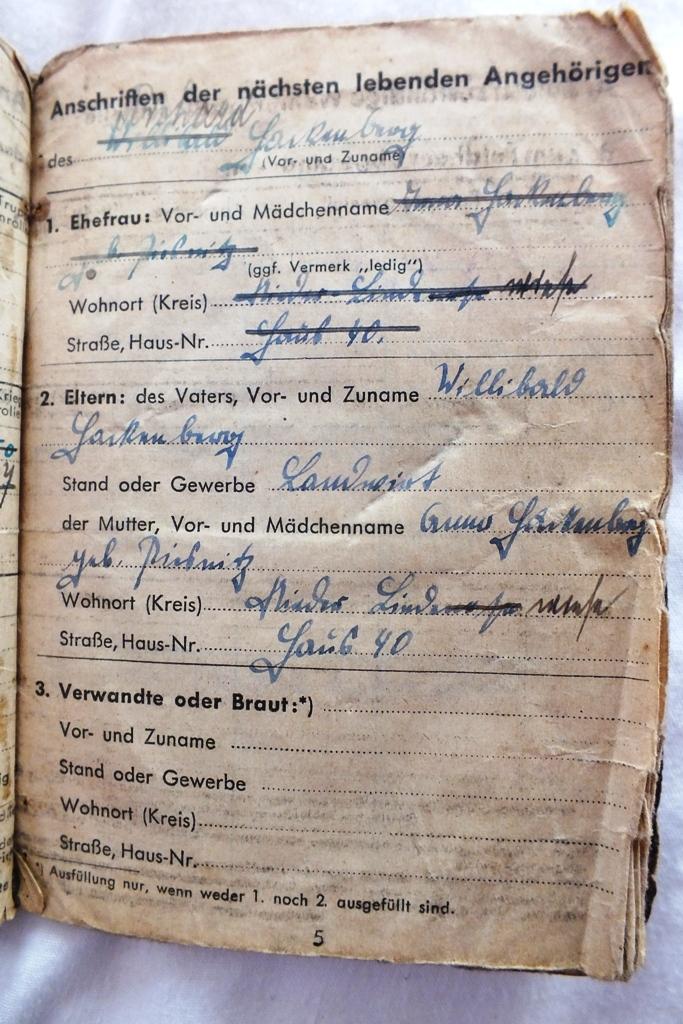 Anschriften der nächsten lebenden Angehörigen
des Hackenberg
(Vor- und Zuname)
1. Ehefrau: Vor- und Mädchenname Anna Hackenberg
geb. Piesnitz
(ggf. Vermerk „ledig")
Wohnort (Kreis) Nieder-Linde wiese
Straße, Haus-Nr. Haus 40.
2. Eltern: des Vaters, Vor- und Zuname Willibald
Hackenberg
Stand oder Gewerbe Landwirt
der Mutter, Vor- und Mädchenname Anna Hackenberg
geb. Piesnitz
Wohnort (Kreis) Nieder Linde wiese
Straße, Haus-Nr. Haus 40
3. Verwandte oder Braut:*)
Vor- und Zuname
Stand oder Gewerbe
Wohnort (Kreis)
Straße, Haus-Nr.
*) Ausfüllung nur, wenn weder 1. noch 2. ausgefüllt sind.
5